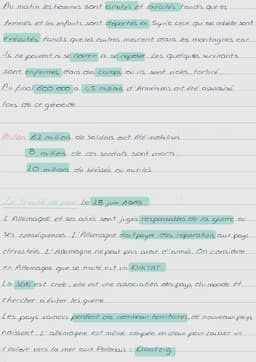 Au matin les hommes sont arretés et exécutés tandis que les
femmes et les enfants sont déportés en Syrie ceux qui se rebelle sont
exécutés tandis que les autres meurent dans les montagnes car
ils ne peuvent ni se nourrir ni se reposer. Les quelques survivants
sont enfermés dans des camps où ils sont violés, torturé.
Au final 600 000 à 1,5 million d'Arméniens ont été assassiné
lors de ce génocide.
Bilan: 62 millions de soldats ont été mobilisés
8 millions de ces soldats sont morts
20 millions de blessés ou mutilés
Le traité de paix Le 28 juin 1919
L'Allemagne et ses alliés sont jugés responsables de la guerre et
ses conséquences. L'Allemagne doit payer des réparations aux pays
d'Amérique. L'Allemagne ne peut plus avoir d'armée. On considère
en Allemagne que ce traité est un DIKTAT.
La SDN est créé, elle est une association des pays du monde et
chercher à éviter la guerre.
Les pays vaincus perdent de nombreux territoires, de nouveaux pays
naissent. L'allemagne est même coupée en deux pour laisser un
couloir vers la mer aux Polonais : Dantzig